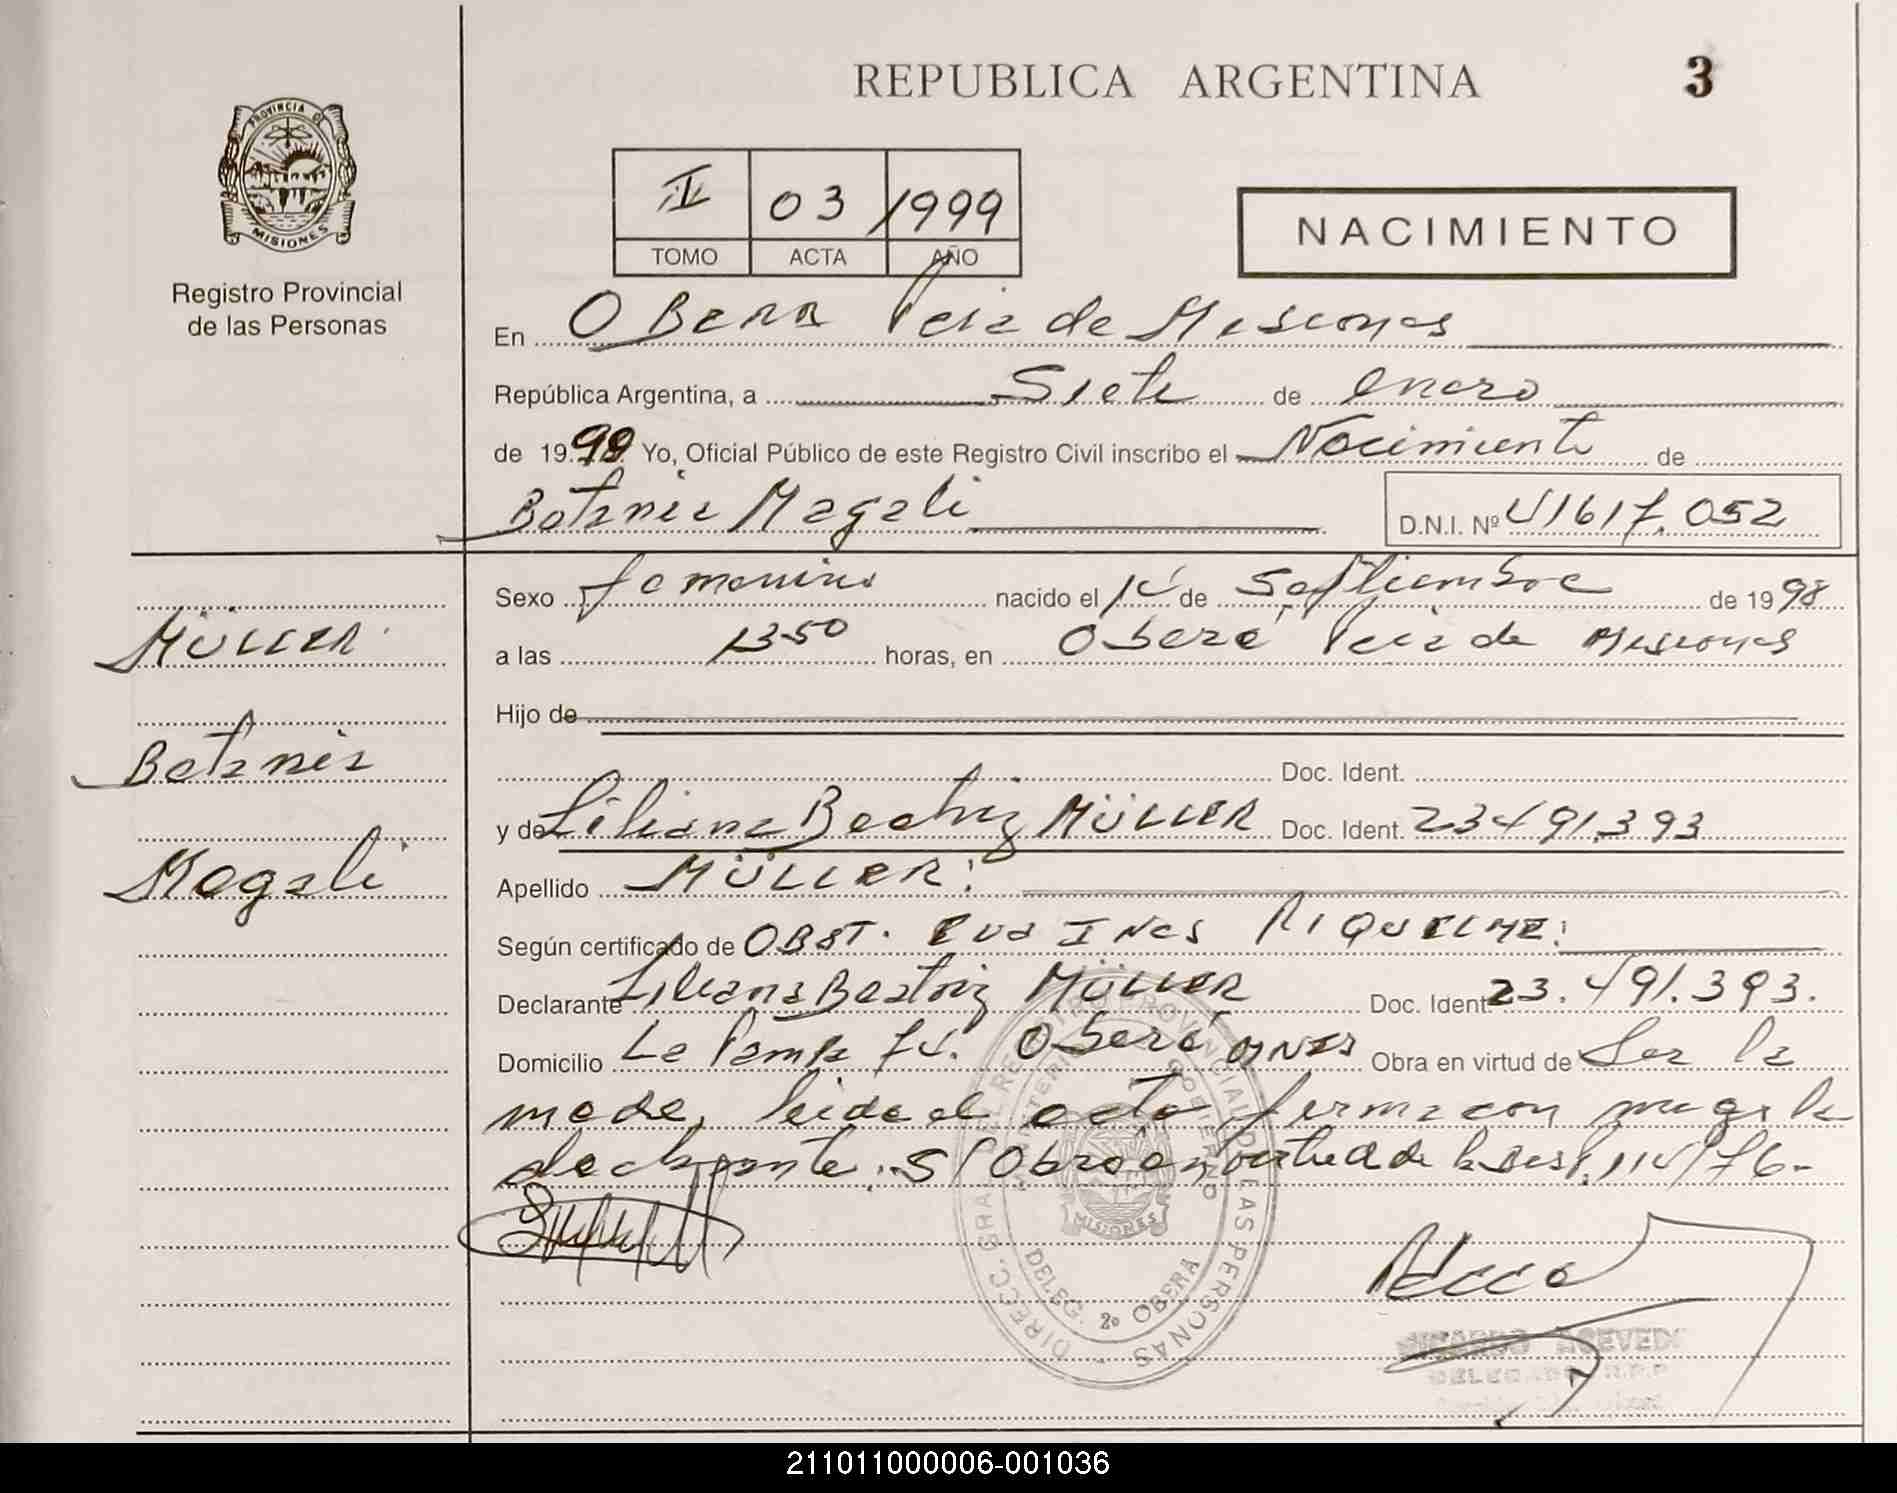 REPUBLICA ARGENTINA 3
PROVINCIA DE
MISIONES
Registro Provincial
de las Personas
II 03 1999
TOMO ACTA AÑO
NACIMIENTO
En OBERA Pcia de Misiones
República Argentina, a Siete de Enero
de 1999 Yo, Oficial Público de este Registro Civil inscribo el Nacimiento de
Betania Magali D.N.I. Nº 41617.052
Sexo femenino nacido el 14 de Septiembre de 1998
MÜLLER
a las 1350 horas, en Oberá Pcia de Misiones
Hijo de
Betania
Doc. Ident.
y de Liliana Beatriz MÜLLER Doc. Ident. 23491393
Magali
Apellido MÜLLER:
Según certificado de OBST. Eva INes RIQUELME:
Declarante Liliana Beatriz MÜLLER Doc. Ident. 23.491.393.
Domicilio La Pampa 74. Oberá MNES Obra en virtud de Ser la
madre, leida el acta firma con migo la
declarante. S/ Obra en virtud de la 114/76-
DIRECC. GRAL. DEL REGISTRO PROVINCIAL DE LAS PERSONAS
MINISTERIO GOBIERNO
MISIONES
DELEG. 2º OBERA
RICARDO ACEVEDO
DELEGADO R.P.P.
211011000006-001036